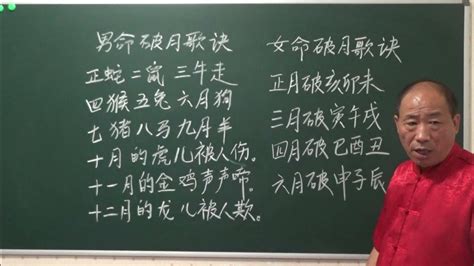 男命破月歌诀
正蛇二鼠三牛走
四猴五兔六月狗
七猪八马九月羊
十月的虎儿被人伤。
十一月的金鸡声声啼。
十二月的龙儿被人欺。
女命破月歌诀
正月破亥卯未
三月破寅午戌
四月破巳酉丑
六月破申子辰